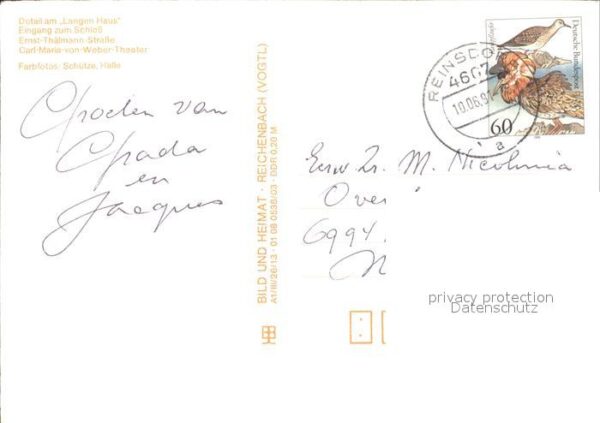 Detail am „Langen Haus"
Eingang zum Schloß
Ernst-Thälmann-Straße
Carl-Maria-von-Weber-Theater
Farbfotos: Schütze, Halle
Groeten van
en
Jacques
BILD UND HEIMAT · REICHENBACH (VOGTL)
A1/III/26/13 · 01 08 0538/03 · DDR 0,20 M
REINSDO
4607
10.06.9
a
Deutsche Bundespost
60
M. Nicolinia
Over
6994.
N
privacy protection
Datenschutz